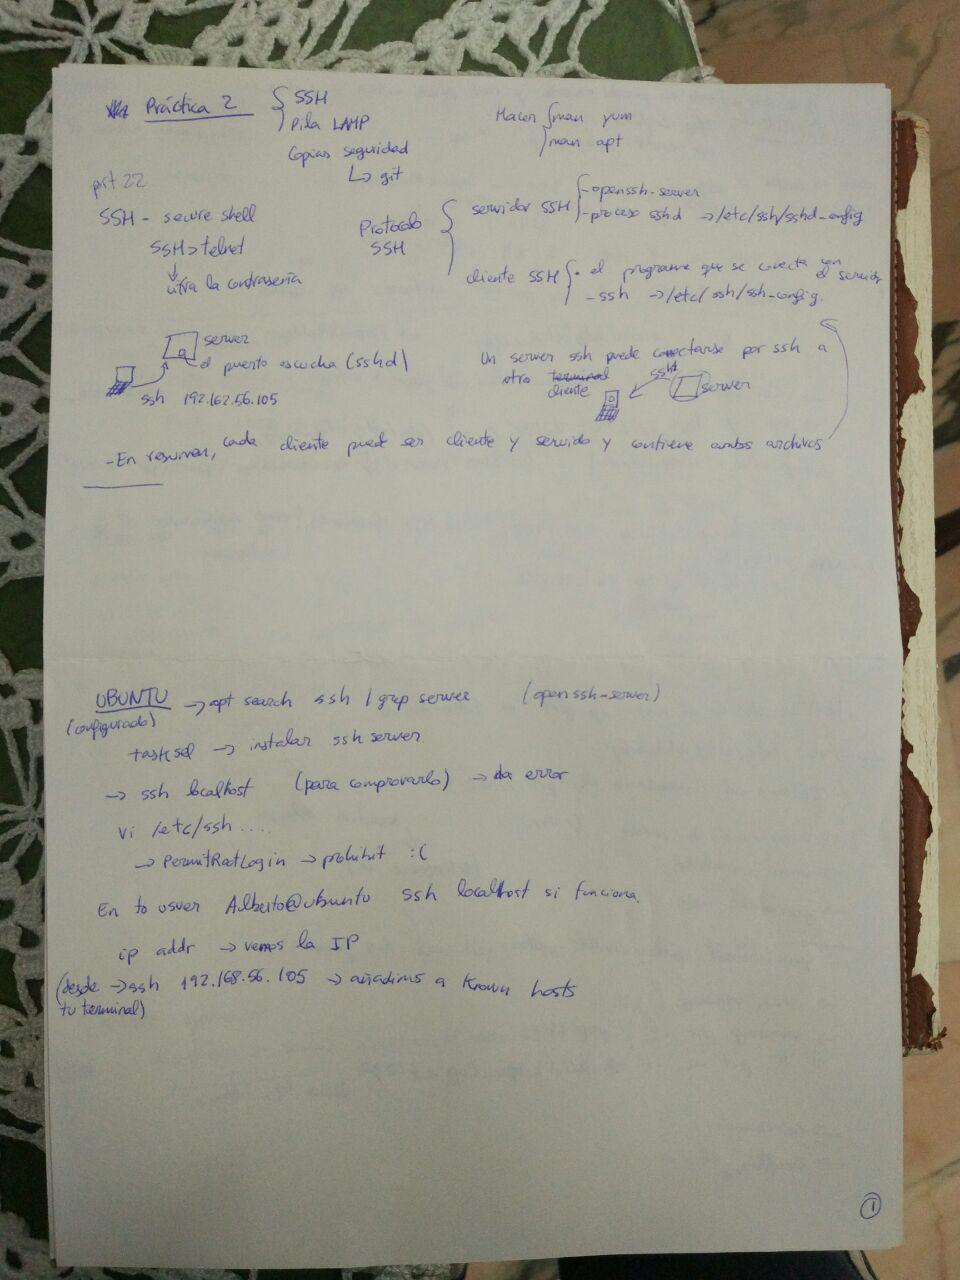 Práctica 2 { SSH
Pila LAMP
Copias seguridad
↳ git
Hacer { man yum
man apt
prt 22
SSH - secure shell
SSH > telnet
↓
cifra la contraseña
Protocolo SSH {
servidor SSH { - openssh-server
- proceso sshd → /etc/ssh/sshd_config
cliente SSH { • el programa que se conecta con el servidor
- ssh → /etc/ssh/ssh_config
server
el puerto escucha (sshd)
ssh 192.162.56.105
Un server ssh puede conectarse por ssh a
otro terminal cliente
sshd
server
- En resumen, cada cliente puede ser cliente y servido y contiene ambos archivos
UBUNTU → apt search ssh | grep server (openssh-server)
(configurado)
tasksel → instalar ssh server
→ ssh localhost (para comprovarlo) → da error
Vi /etc/ssh ....
→ PermitRootLogin → prohibit :(
En tu usuer Alberto@ubuntu ssh localhost si funciona.
ip addr → vemos la IP
(desde tu terminal) → ssh 192.168.56.105 → añadimos a Known hosts
1